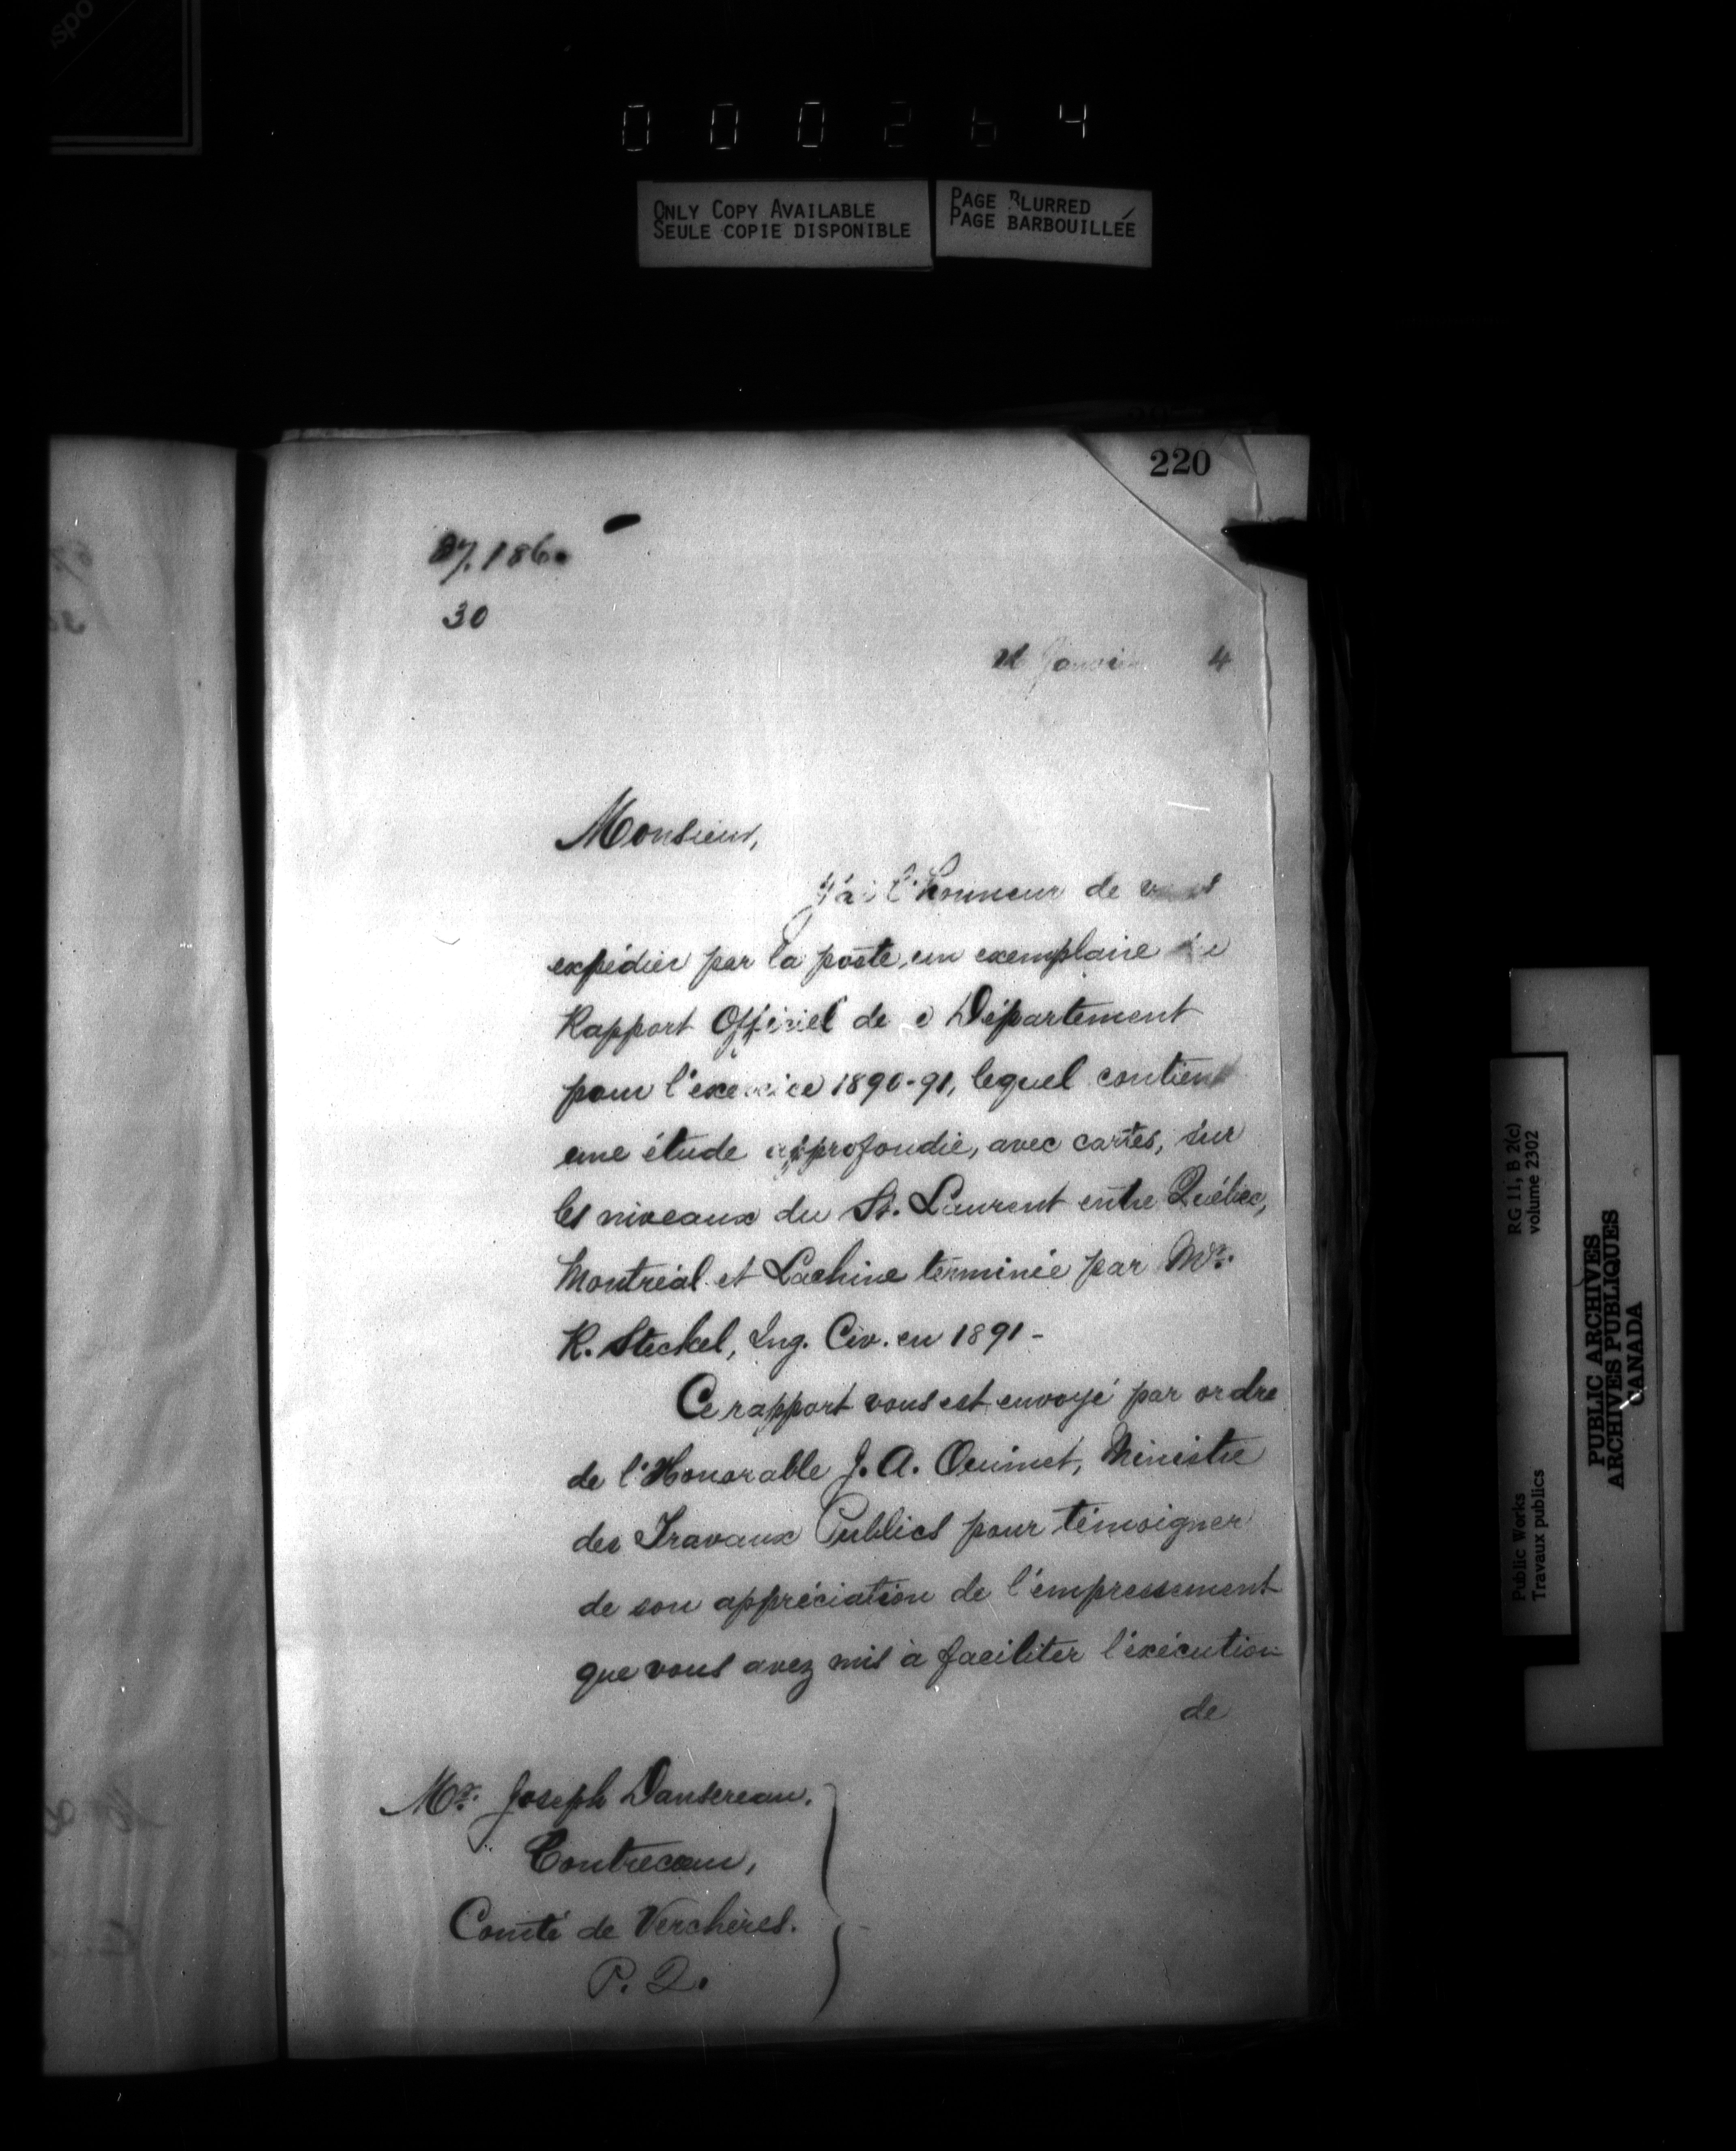 000264
ONLY COPY AVAILABLE
SEULE COPIE DISPONIBLE
PAGE BLURRED
PAGE BARBOUILLÉE
220
30
Janvier 4
Monsieur,
J'ai l'honneur de vous
expédier par la poste, un exemplaire
Rapport Officiel de ce Département
pour l'exercice 1890-91, lequel contient
une étude approfondie, avec cartes, sur
les niveaux du St. Laurent entre Québec,
Montréal et Lachine terminée par Mr.
R. Steckel, Ing. Civ. en 1891-
Ce rapport vous est envoyé par ordre
de l'Honorable J. A. Ouimet, Ministre
des Travaux Publics pour témoigner
de son appréciation de l'empressement
que vous avez mis à faciliter l'éxécution
de
Mr. Joseph Dansereau.
Contrecoeur,
Comté de Verchères.
P. Q.
RG 11, B 2(c)
volume 2302
Public Works
Travaux publics
PUBLIC ARCHIVES
ARCHIVES PUBLIQUES
CANADA